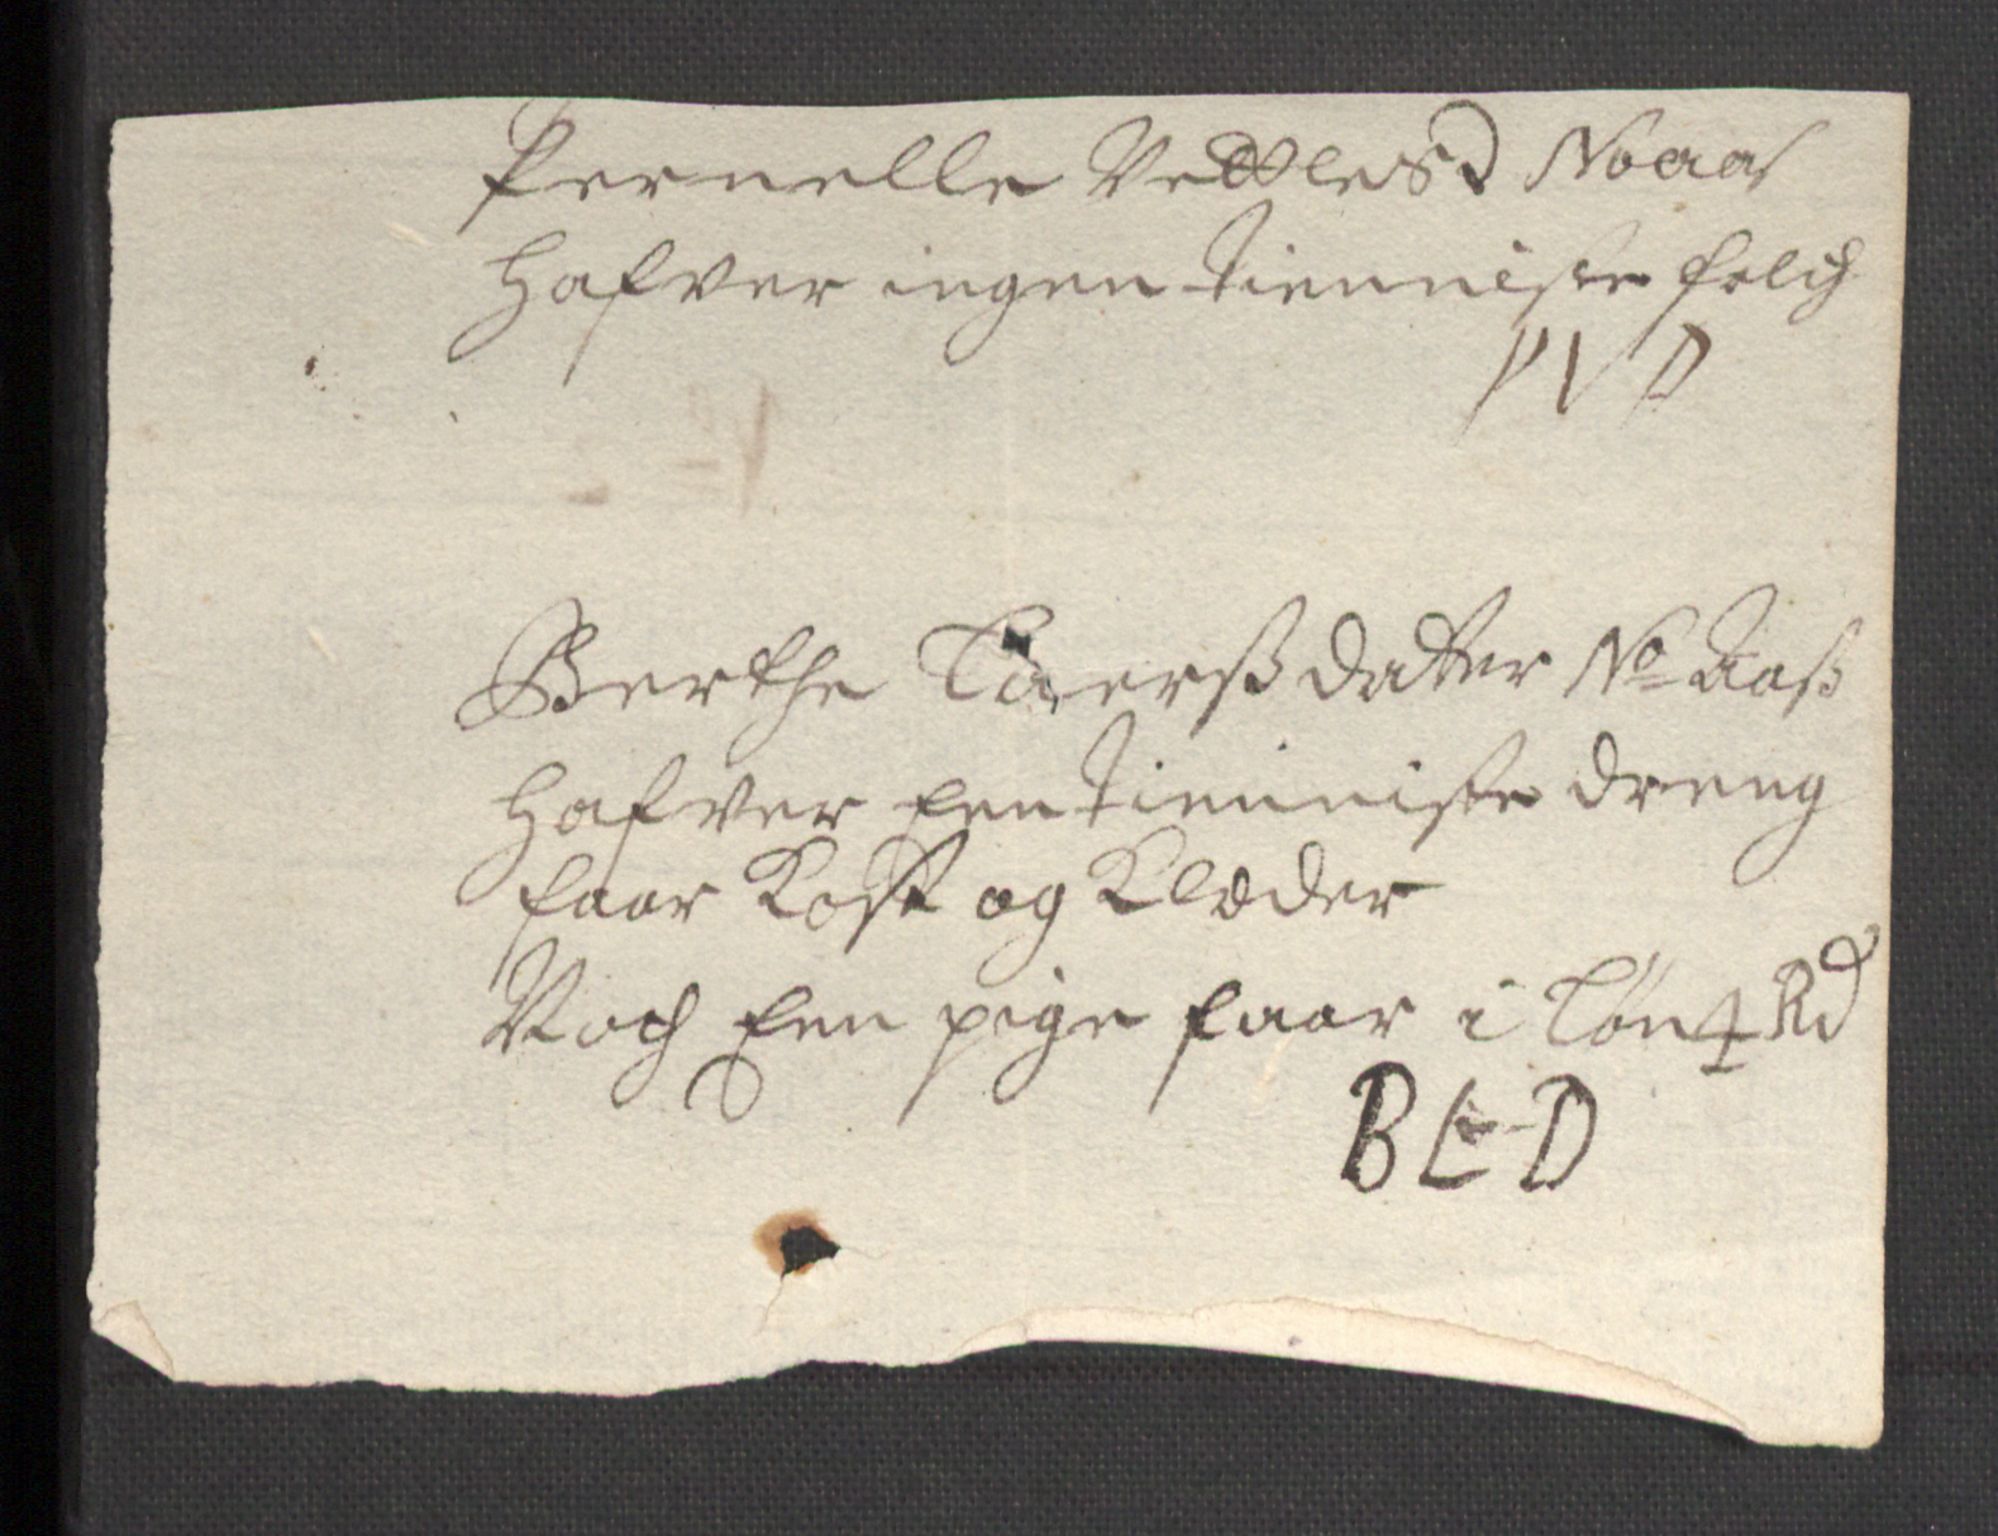 Pernelle Vettles D Noaas
Hafver ingen tienniste folch
PVD
Berthe Laerss datter No Aass
Hafver Een tienniste dreng
faar Kost og Klæder
Noch Een pige faar i Løn 4 Rd
BLD